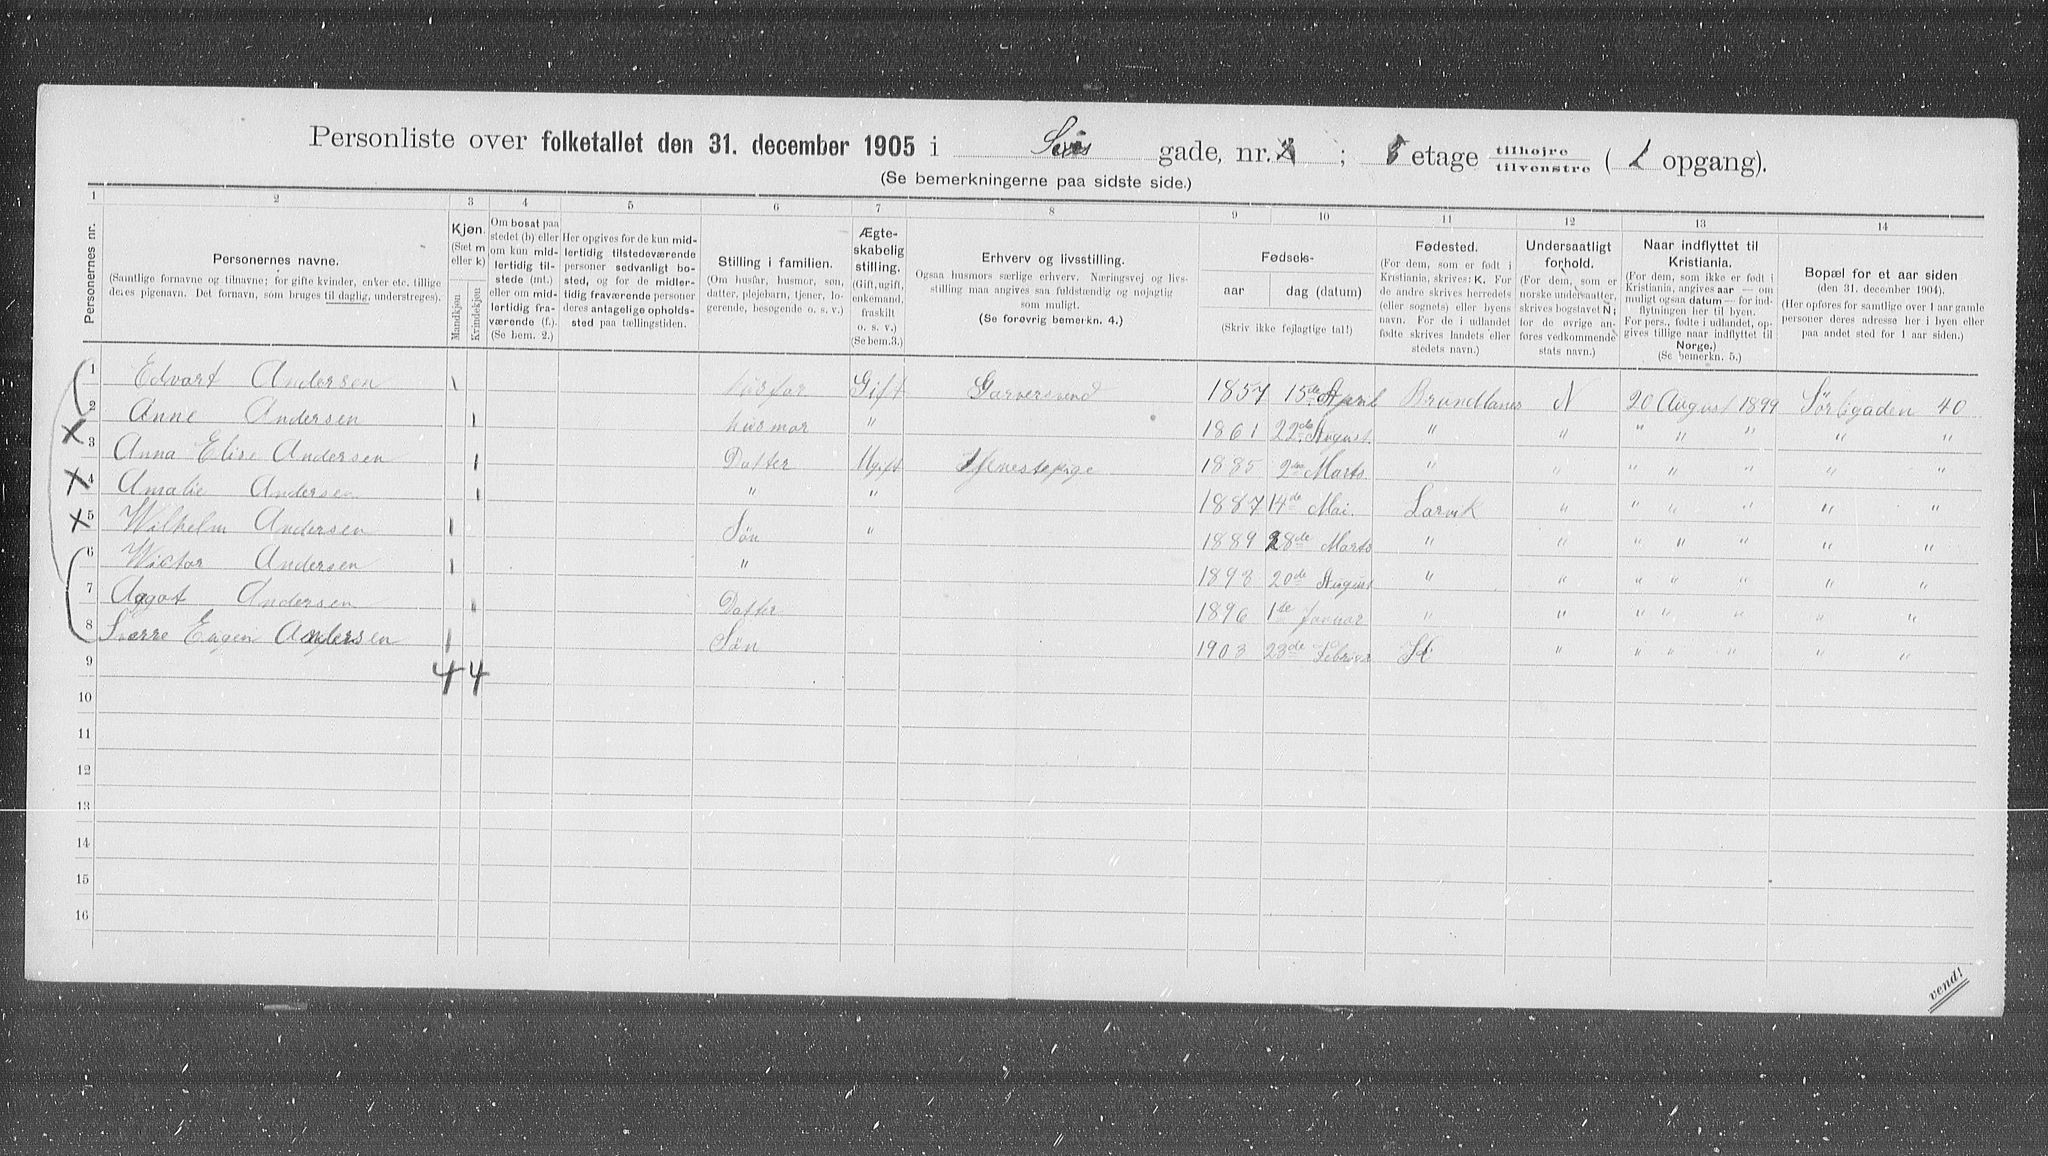 Personliste over folketallet den 31. december 1905 i Seils gade, nr. ; 5 etage tilhøjre tilvenstre ( 1 opgang).
(Se bemerkningerne paa sidste side.)
1 2 3 4 5 6 7 8 9 10 11 12 13 14
Personernes nr.
Personernes navne.
(Samtlige fornavne og tilnavne; for gifte kvinder, enker etc. tillige deres pigenavn. Det fornavn, som bruges til daglig, understreges).
Kjøn.
(Sæt m eller k)
Mandkjøn
Kvindekjøn
Om bosat paa stedet (b) eller om kun midlertidig tilstede (mt.) eller om midlertidig fraværende (f.). (Se bem. 2.)
Her opgives for de kun midlertidig tilstedeværende personer sedvanligt bosted, og for de midlertidig fraværende personer deres antagelige opholdssted paa tællingstiden.
Stilling i familien.
(Om husfar, husmor, søn, datter, plejebarn, tjener, logerende, besøgende o. s. v.)
Ægteskabelig stilling.
(Gift, ugift, enkemand, fraskilt o. s. v.)
(Se bem.3.)
Erhverv og livsstilling.
Ogsaa husmors særlige erhverv. Næringsvej og livsstilling maa angives saa fuldstændig og nøjagtig som muligt.
(Se forøvrig bemerkn. 4.)
Fødsels-
aar
dag (datum)
(Skriv ikke fejlagtige tal!)
Fødested.
(For dem, som er født i Kristiania, skrives: K. For de andre skrives herredets (eller sognets) eller byens navn. For de i udlandet fødte skrives landets eller stedets navn.)
Undersaatligt forhold.
(For dem, som er norske undersaatter, skrives bogstavet N; for de øvrige anføres vedkommende stats navn.)
Naar indflyttet til Kristiania.
(For dem, som ikke er født i Kristiania, angives aar — om muligt ogsaa datum — for indflytningen her til byen. For pers., fødte i udlandet, opgives tillige naar indflyttet til Norge.)
(Se bemerkn. 5.)
Bopæl for et aar siden
(den 31. december 1904).
(Her opføres for samtlige over 1 aar gamle personer deres adresse her i byen eller paa andet sted for 1 aar siden.)
1 Edvart Andersen 1 husfar Gift Garversvend 1857 15de April Brundlanes N 20 August 1899 Sørligaden 40
2 Anne Andersen 1 husmor " 1861 22de August " " " " " " "
3 Anna Elise Andersen 1 Datter Ugift Tjenestepige 1885 2den Marts " " " " " " "
4 Amalie Andersen 1 " " 1887 14de Mai. Larvik " " " " " "
5 Wilhelm Andersen 1 Søn " 1889 28de Marts " " " " " " "
6 Wictor Andersen 1 " 1893 20de August " " " " " " "
7 Aagot Andersen 1 Datter 1896 1ste Januar " " " " " " "
8 Sverre Eugen Andersen 1 Søn 1903 23de Februar K " " " " " "
9 4 4
10
11
12
13
14
15
16
vend!